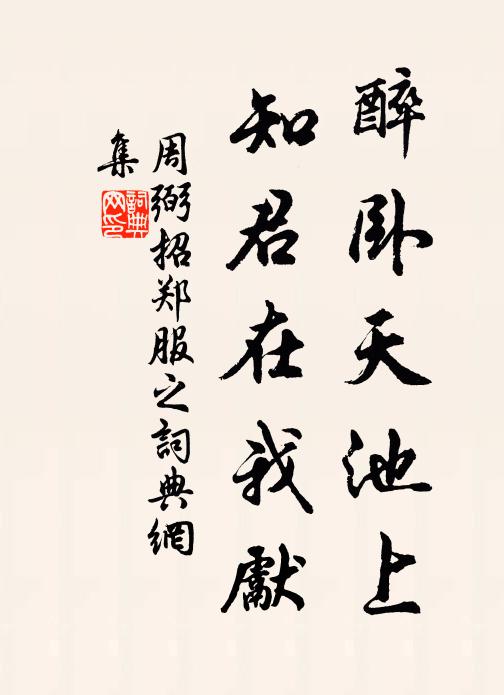 醉卧天池上
知君在我獻
周弼招郑服之詞典網
集
詞典
网印